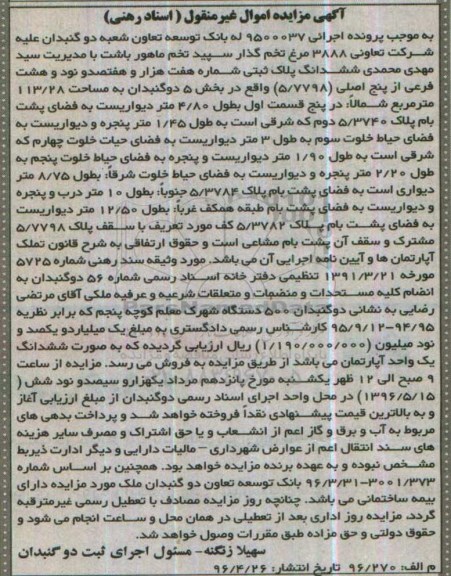 آگهی مزایده اموال غیرمنقول ( اسناد رهنی)
به موجب پرونده اجرائی ۹۵۰۰۰۳۷ له بانک توسعه تعاون شعبه دو گنبدان علیه
شرکت تعاونی ۳۸۸۸ مرغ تخم گذار سپید تخم ماهور باشت با مدیریت سید
مهدی محمدی ششدانگ پلاک ثبتی شماره هفت هزار و هفتصدو نود و هشت
فرعی از پنج اصلی (۵/۷۷۹۸) واقع در بخش ۵ دوگنبدان به مساحت ۱۱۳/۲۸
مترمربع شمالاً: در پنج قسمت اول بطول ۴/۸۰ متر دیواریست به فضای پشت
بام پلاک ۵/۳۷۴۰ دوم که شرقی است به طول ۱/۴۵ متر پنجره و دیواریست به
فضای حیاط خلوت سوم به طول ۳ متر دیواریست به فضای حیات خلوت چهارم که
شرقی است به طول ۱/۹۰ متر دیواریست و پنجره به فضای حیاط خلوت پنجم به
طول ۲/۲۰ متر پنجره و دیواریست به فضای حیاط خلوت شرقاً: بطول ۸/۷۵ متر
دیواری است به فضای پشت بام پلاک ۵/۳۷۸۴ جنوباً: بطول ۱۰ متر درب و پنجره
و دیواریست به فضای پشت بام طبقه همکف غرباً: بطول ۱۲/۵۰ متر دیواریست
به فضای پشت بام پلاک ۵/۳۷۸۲ کف مورد تعریف با سقف پلاک ۵/۷۷۹۸
مشترک و سقف آن پشت بام مشاعی است و حقوق ارتفاقی به شرح قانون تملک
آپارتمان ها و آیین نامه اجرایی آن می باشد. مورد وثیقه سند رهنی شماره ۵۷۲۵
مورخه ۱۳۹۱/۳/۲۱ تنظیمی دفتر خانه اسناد رسمی شماره ۵۶ دوگنبدان به
انضام کلیه مستحدثات و منضمات و متعلقات شرعیه و عرفیه ملکی آقای مرتضی
رضایی به نشانی دوگنبدان ۵۰۰ دستگاه شهرک معلم کوچه پنجم که برابر نظریه
۹۵/۹/۱۲-۹۴/۹۵ کارشناس رسمی دادگستری به مبلغ یک میلیاردو یکصد و
نود میلیون (۱/۱۹۰/۰۰۰/۰۰۰) ریال ارزیابی گردیده که به صورت ششدانگ
یک واحد آپارتمان می باشد از طریق مزایده به فروش می رسد. مزایده از ساعت
۹ صبح الی ۱۲ ظهر یکشنبه مورخ پانزدهم مرداد یکهزارو سیصدو نود شش (
۱۳۹۶/۵/۱۵) در محل واحد اجرای اسناد رسمی دوگنبدان از مبلغ ارزیابی آغاز
و به بالاترین قیمت پیشنهادی نقداً فروخته خواهد شد و پرداخت بدهی های
مربوط به آب و برق و گاز اعم از انشعاب و یا حق اشتراک و مصرف سایر هزینه
های سند انتقال اعم از عوارض شهرداری – مالیات دارایی و دیگر ادارت ذیربط
مشخص نبوده و به عهده برنده مزایده خواهد بود. همچنین بر اساس شماره
۹۶/۳/۳۱-۳۰۰۱/۳۷۳ بانک توسعه تعاون دو گنبدان ملک مورد مزایده دارای
بیمه ساختمانی می باشد. چنانچه روز مزایده مصادف با تعطیل رسمی غیرمترقبه
گردد، مزایده روز اداری بعد از تعطیلی در همان محل و ساعت انجام می شود و
حقوق دولتی و حق مزاده طبق مقررات وصول خواهد شد.
سهیلا زنگنه- مسئول اجرای ثبت دو گنبدان
م الف: ۹۶/۲۷۰ تاریخ انتشار: ۹۶/۴/۲۶